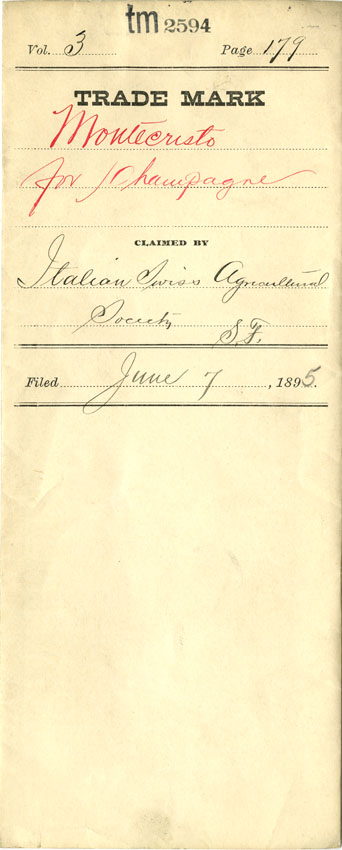 tm 2594
Vol. 3 Page 179
TRADE MARK
Montecristo
for Champagne
CLAIMED BY
Italian Swiss Agricultural
Society
S.F.
Filed June 7, 1895.